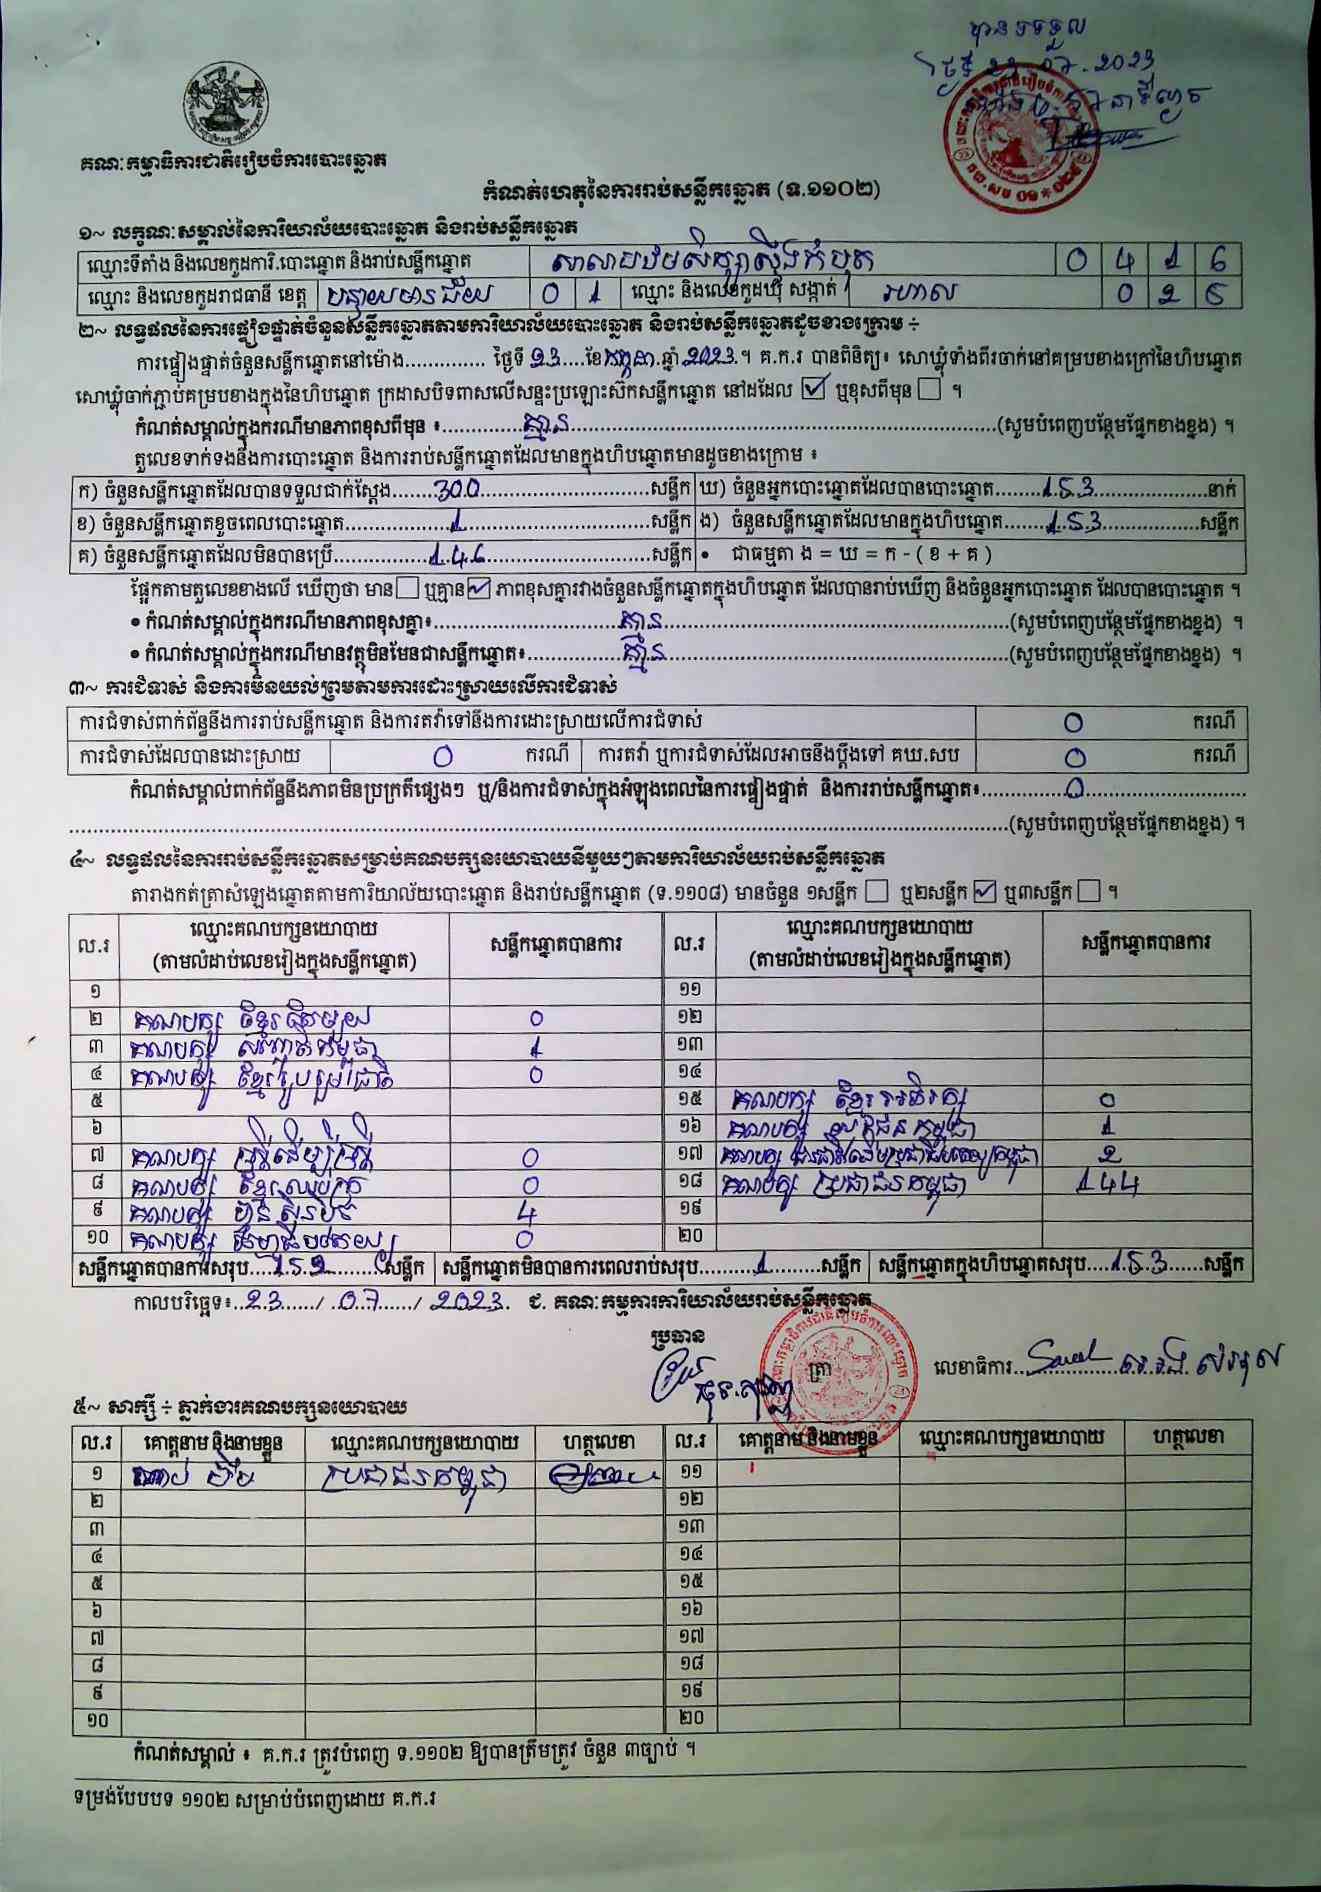 បានទទួល
ថ្ងៃទី 23 . 07 . 2023
គណៈកម្មាធិការជាតិរៀបចំការបោះឆ្នោត
កំណត់ហេតុនៃការរាប់សន្លឹកឆ្នោត (ទ.១១០២)
១~ លក្ខណៈសម្គាល់នៃការិយាល័យបោះឆ្នោត និងរាប់សន្លឹកឆ្នោត
ឈ្មោះទីតាំង និងលេខកូដការិ.បោះឆ្នោត និងរាប់សន្លឹកឆ្នោត សាលាបឋមសិក្សាស៊ីងកំបុត 0 4 1 6
ឈ្មោះ និងលេខកូដរាជធានី ខេត្ត បន្ទាយមានជ័យ 0 1 ឈ្មោះ និងលេខកូដឃុំ សង្កាត់ រហាល 0 2 5
២~ លទ្ធផលនៃការផ្ទៀងផ្ទាត់ចំនួនសន្លឹកឆ្នោតតាមការិយាល័យបោះឆ្នោត និងរាប់សន្លឹកឆ្នោតដូចខាងក្រោម ÷
ការផ្ទៀងផ្ទាត់ចំនួនសន្លឹកឆ្នោតនៅម៉ោង.............. ថ្ងៃទី 23 ខែ កក្កដា ឆ្នាំ 2023 ។ គ.ក.រ បានពិនិត្យ៖ សោឃ្លុំទាំងពីរចាក់នៅគម្របខាងក្រៅនៃហិបឆ្នោត
សោឃ្លុំចាក់ភ្ជាប់គម្របខាងក្នុងនៃហិបឆ្នោត ក្រដាសបិទពាសលើសន្ទះប្រឡោះស៊កសន្លឹកឆ្នោត នៅដដែល ☑ ឬខុសពីមុន ☐ ។
កំណត់សម្គាល់ក្នុងករណីមានភាពខុសពីមុន ៖ គ្មាន (សូមបំពេញបន្ថែមផ្នែកខាងខ្នង) ។
តួលេខទាក់ទងនឹងការបោះឆ្នោត និងការរាប់សន្លឹកឆ្នោតដែលមានក្នុងហិបឆ្នោតមានដូចខាងក្រោម ៖
ក) ចំនួនសន្លឹកឆ្នោតដែលបានទទួលជាក់ស្តែង 300 សន្លឹក ឃ) ចំនួនអ្នកបោះឆ្នោតដែលបានបោះឆ្នោត 153 នាក់
ខ) ចំនួនសន្លឹកឆ្នោតខូចពេលបោះឆ្នោត 1 សន្លឹក ង) ចំនួនសន្លឹកឆ្នោតដែលមានក្នុងហិបឆ្នោត 153 សន្លឹក
គ) ចំនួនសន្លឹកឆ្នោតដែលមិនបានប្រើ 146 សន្លឹក • ជាធម្មតា ង = ឃ = ក - ( ខ + គ )
ផ្អែកតាមតួលេខខាងលើ ឃើញថា មាន ☐ ឬគ្មាន ☑ ភាពខុសគ្នារវាងចំនួនសន្លឹកឆ្នោតក្នុងហិបឆ្នោត ដែលបានរាប់ឃើញ និងចំនួនអ្នកបោះឆ្នោត ដែលបានបោះឆ្នោត ។
• កំណត់សម្គាល់ក្នុងករណីមានភាពខុសគ្នា៖ គ្មាន (សូមបំពេញបន្ថែមផ្នែកខាងខ្នង) ។
• កំណត់សម្គាល់ក្នុងករណីមានវត្ថុមិនមែនជាសន្លឹកឆ្នោត៖ គ្មាន (សូមបំពេញបន្ថែមផ្នែកខាងខ្នង) ។
៣~ ការជំទាស់ និងការមិនយល់ព្រមតាមការដោះស្រាយលើការជំទាស់
ការជំទាស់ពាក់ព័ន្ធនឹងការរាប់សន្លឹកឆ្នោត និងការតវ៉ាទៅនឹងការដោះស្រាយលើការជំទាស់ 0 ករណី
ការជំទាស់ដែលបានដោះស្រាយ 0 ករណី ការតវ៉ា ឬការជំទាស់ដែលអាចនឹងប្តឹងទៅ គឃ.សប 0 ករណី
កំណត់សម្គាល់ពាក់ព័ន្ធនឹងភាពមិនប្រក្រតីផ្សេងៗ ឬ/និងការជំទាស់ក្នុងអំឡុងពេលនៃការផ្ទៀងផ្ទាត់ និងការរាប់សន្លឹកឆ្នោត៖ 0
(សូមបំពេញបន្ថែមផ្នែកខាងខ្នង) ។
៤~ លទ្ធផលនៃការរាប់សន្លឹកឆ្នោតសម្រាប់គណបក្សនយោបាយនីមួយៗតាមការិយាល័យរាប់សន្លឹកឆ្នោត
តារាងកត់ត្រាសំឡេងឆ្នោតតាមការិយាល័យបោះឆ្នោត និងរាប់សន្លឹកឆ្នោត (ទ.១១០៨) មានចំនួន ១សន្លឹក ☐ ឬ២សន្លឹក ☑ ឬ៣សន្លឹក ☐ ។
ល.រ ឈ្មោះគណបក្សនយោបាយ (តាមលំដាប់លេខរៀងក្នុងសន្លឹកឆ្នោត) សន្លឹកឆ្នោតបានការ ល.រ ឈ្មោះគណបក្សនយោបាយ (តាមលំដាប់លេខរៀងក្នុងសន្លឹកឆ្នោត) សន្លឹកឆ្នោតបានការ
១ ១១
២ គណបក្ស ខ្មែររួបរួម 0 ១២
៣ គណបក្ស សញ្ជាតិកម្ពុជា 1 ១៣
៤ គណបក្ស ខ្មែររួបរួមជាតិ 0 ១៤
៥ ១៥ គណបក្ស ខ្មែរអភិរក្ស 0
៦ ១៦ គណបក្ស យុវជនកម្ពុជា 1
៧ គណបក្ស ស្ត្រីដើម្បីស្ត្រី 0 ១៧ 2
៨ គណបក្ស ខ្មែរឈប់ក្រ 0 ១៨ គណបក្ស ប្រជាជនកម្ពុជា 144
៩ គណបក្ស ហ៊្វុនស៊ិនប៉ិច 4 ១៩
១០ គណបក្ស ធិម្មាធិបតេយ្យ 0 ២០
សន្លឹកឆ្នោតបានការសរុប 152 សន្លឹក សន្លឹកឆ្នោតមិនបានការពេលរាប់សរុប 1 សន្លឹក សន្លឹកឆ្នោតក្នុងហិបឆ្នោតសរុប 153 សន្លឹក
កាលបរិច្ឆេទ៖ 23 / 07 / 2023 ជ. គណៈកម្មការការិយាល័យរាប់សន្លឹកឆ្នោត
ប្រធាន
ត្រា
លេខាធិការ
៥~ សាក្សី ÷ ភ្នាក់ងារគណបក្សនយោបាយ
ល.រ គោត្តនាម និងនាមខ្លួន ឈ្មោះគណបក្សនយោបាយ ហត្ថលេខា ល.រ គោត្តនាម និងនាមខ្លួន ឈ្មោះគណបក្សនយោបាយ ហត្ថលេខា
១ ប្រជាជនកម្ពុជា ១១
២ ១២
៣ ១៣
៤ ១៤
៥ ១៥
៦ ១៦
៧ ១៧
៨ ១៨
៩ ១៩
១០ ២០
កំណត់សម្គាល់ ៖ គ.ក.រ ត្រូវបំពេញ ទ.១១០២ ឱ្យបានត្រឹមត្រូវ ចំនួន ៣ច្បាប់ ។
ទម្រង់បែបបទ ១១០២ សម្រាប់បំពេញដោយ គ.ក.រ